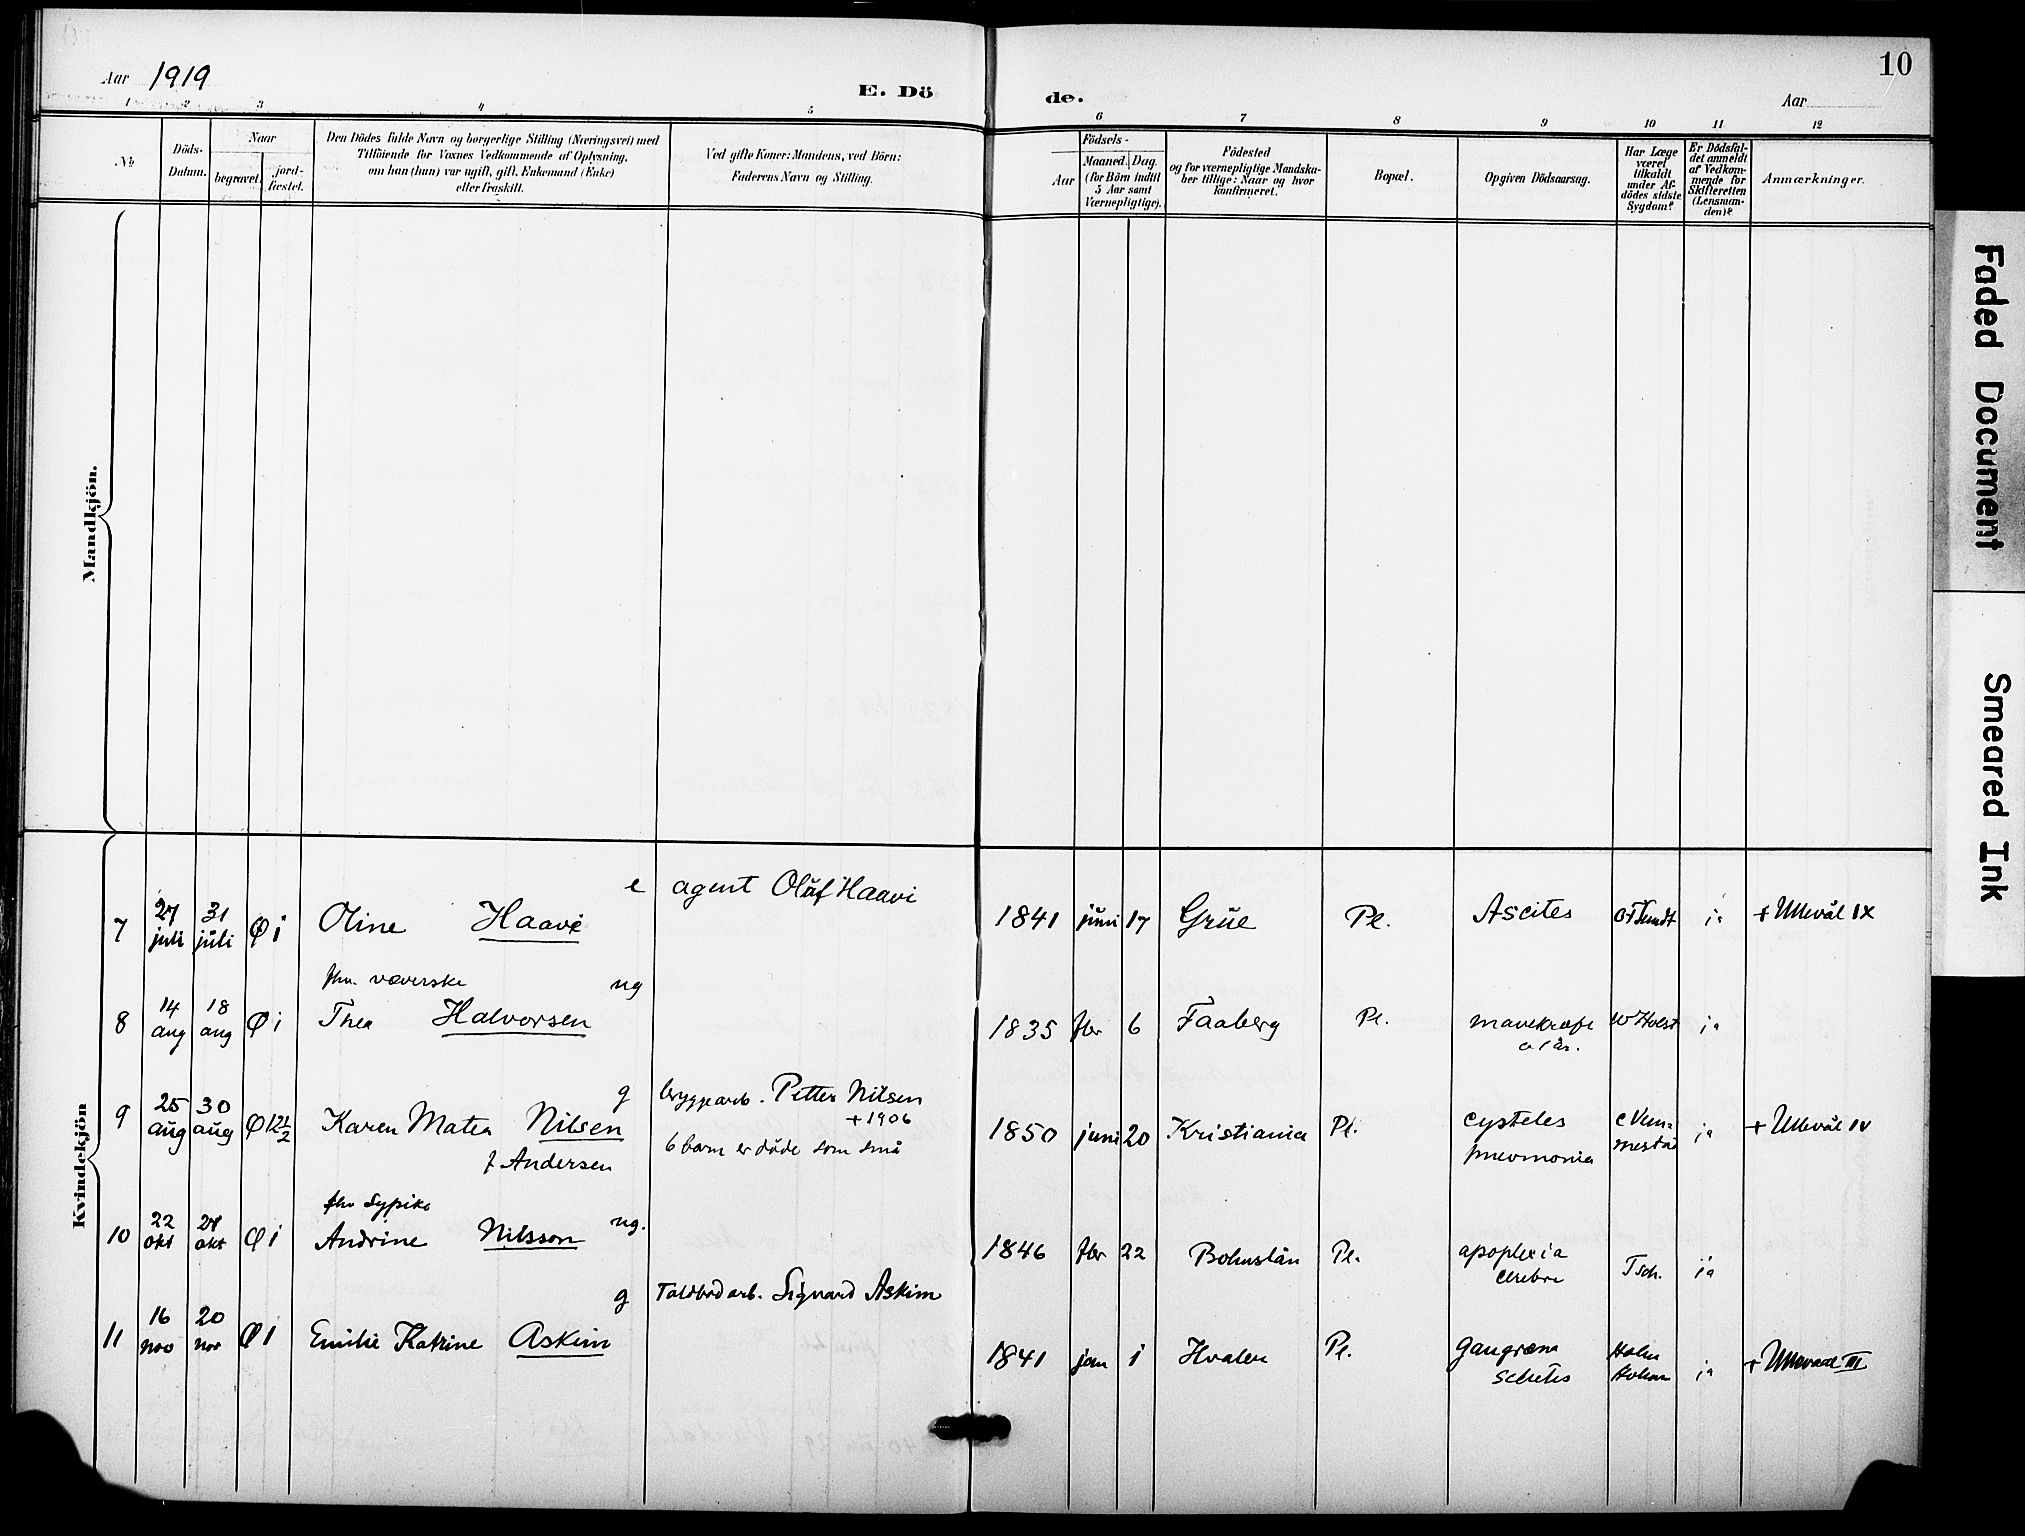 Aar 1919
E. Dö
de.
10
Aar
1 2 3 4 5 6 7 8 9 10 11 12
No
Döds-
Datum.
Naar
begravet.
jord-
fæstet.
Den Dödes fulde Navn og borgerlige Stilling (Næringsvei) med
Tilföiende for Voxnes Vedkommende af Oplysning,
om han (hun) var ugift, gift, Enkemand (Enke)
eller fraskilt.
Ved gifte Koner: Mandens, ved Börn:
Faderens Navn og Stilling.
Födsels-
Aar
Maaned. Dag.
(for Börn indtil
5 Aar samt
Værnepligtige).
Födested
og for værnepligtige Mandska-
ber tillige: Naar og hvor
konfirmeret.
Bopæl.
Opgiven Dödsaarsag.
Har Læge
været
tilkaldt
under Af-
dödes sidste
Sygdom?
Er Dödsfal-
det anmeldt
af Vedkom-
mende for
Skifteretten
(Lensman-
den)?
Anmærkninger.
Mandkjön.
Kvindekjön
e agent Oluf Haavi
7 27 juli 31 juli Ø 1 Oline Haavi 1841 juni 17 Grue Pl. Ascites ja + Ullevål IX
fhv. væverske ug
8 14 aug 18 aug Ø 1 Thea Halvorsen 1835 fbr 6 Faaberg Pl. mavekræft W Holst ja
g bryggearb. Petter Nilsen
+ 1906
9 25 aug 30 aug Ø 12½ Karen Matea Nilsen 6 barn er døde som små 1850 juni 20 Kristiania Pl. cysteles ja + Ullevål IV
f Andersen pneomonia
fhv sypike ug.
10 22 okt 27 okt Ø 1 Andrine Nilsson 1846 fbr 22 Bohuslän Pl. apoplexia cerebri Tsch. ja
g Toldbodarb. Sigvard Askim
11 16 nov 20 nov Ø 1 Emilie Katrine Askim 1841 jan 1 Hvaler Pl. gangræna ja + Ullevaal III
Faded Document
Smeared Ink